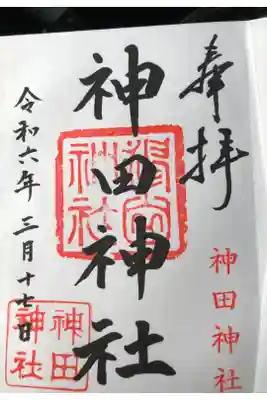 奉拝
神田神社
神田神社
神社
令和六年 三月十七日
神田
神社